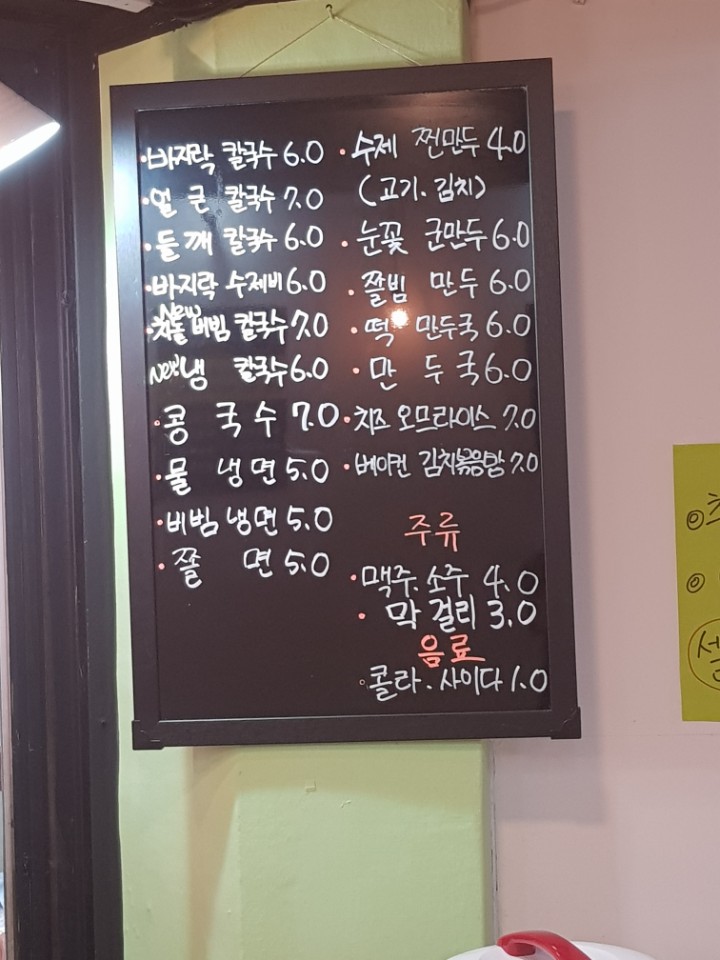 ·바지락 칼국수 6.0
·얼큰 칼국수 7.0
·들깨 칼국수 6.0
·바지락 수제비 6.0
New
·차돌 비빔 칼국수 7.0
New 냉 칼국수 6.0
·콩국수 7.0
·물냉면 5.0
·비빔냉면 5.0
·쫄면 5.0
·수제 찐만두 4.0
(고기.김치)
·눈꽃 군만두 6.0
·쫄빔 만두 6.0
·떡 만두국 6.0
·만두국 6.0
·치즈 오므라이스 7.0
·베이컨 김치볶음밥 7.0
주류
·맥주.소주 4.0
·막걸리 3.0
음료
·콜라.사이다 1.0